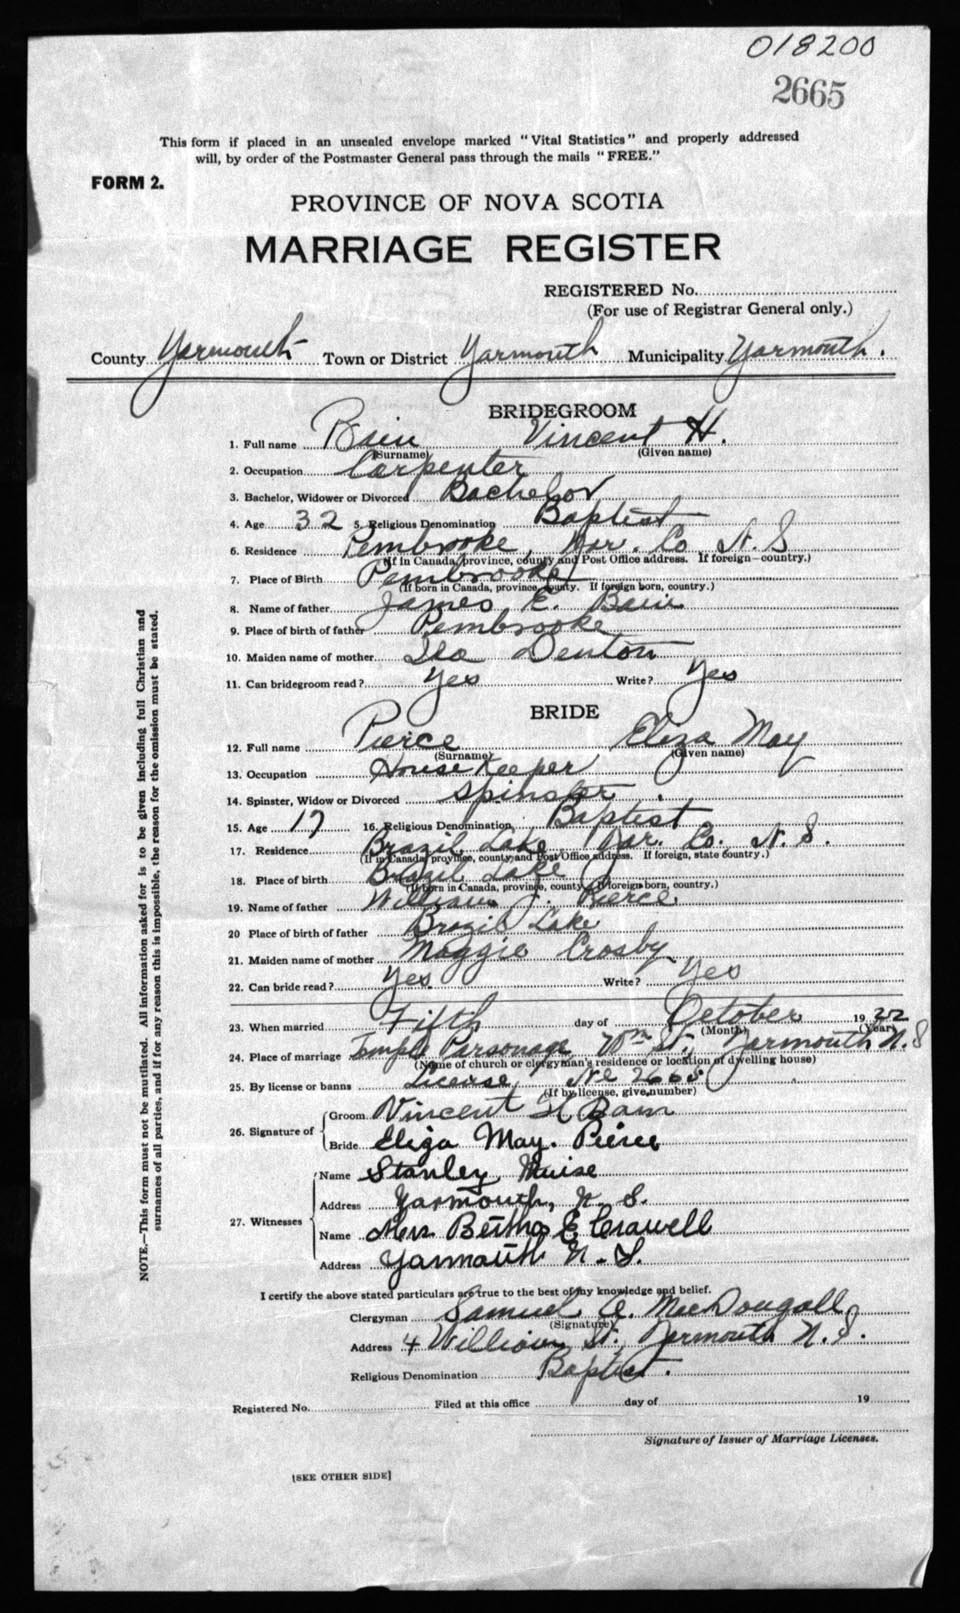 018200
2665
This form if placed in an unsealed envelope marked "Vital Statistics" and properly addressed
will, by order of the Postmaster General pass through the mails "FREE."
FORM 2.
PROVINCE OF NOVA SCOTIA
MARRIAGE REGISTER
REGISTERED No.
(For use of Registrar General only.)
County Yarmouth Town or District Yarmouth Municipality Yarmouth.
BRIDEGROOM
1. Full name Bain Vincent H.
(Surname) (Given name)
2. Occupation Carpenter
3. Bachelor, Widower or Divorced Bachelor
4. Age 32 5. Religious Denomination Baptist
6. Residence Pembrooke, Yar. Co N.S
(If in Canada, province, county and Post Office address. If foreign—country.)
7. Place of Birth Pembrooke
(If born in Canada, province, county. If foreign born, country.)
8. Name of father James E. Bain
9. Place of birth of father Pembrooke
10. Maiden name of mother Denton
11. Can bridegroom read? Yes Write? Yes
BRIDE
12. Full name Pierce Eliza May
(Surname) (Given name)
13. Occupation House Keeper
14. Spinster, Widow or Divorced Spinster.
15. Age 17 16. Religious Denomination, Baptist
17. Residence Brazil Lake Yar. Co. N.S.
(If in Canada, province, county and Post Office address. If foreign, state country.)
18. Place of birth Brazil Lake
(If born in Canada, province, county. If foreign born, country.)
19. Name of father William J. Pierce
20 Place of birth of father Brazil Lake
21. Maiden name of mother Maggie Crosby
22. Can bride read? Yes Write? Yes
23. When married Fifth day of October 1922
(Month) (Year)
24. Place of marriage Temple Parsonage Wm St., Yarmouth N.S
(Name of church or clergyman's residence or location of dwelling house)
25. By license or banns License
(If by license, give number)
26. Signature of
Groom Vincent H Bain
Bride Eliza May. Pierce
27. Witnesses
Name Stanley Muise
Address Yarmouth, N.S.
Name Mrs Bertha E Crowell
Address Yarmouth N.S.
I certify the above stated particulars are true to the best of my knowledge and belief.
Clergyman Samuel A. MacDougall
(Signature)
Address 4 William St., Yarmouth N.S.
Religious Denomination Baptist.
Registered No. Filed at this office day of 19
Signature of Issuer of Marriage Licenses.
[SEE OTHER SIDE]
NOTE.—This form must not be mutilated. All information asked for is to be given including full Christian and
surnames of all parties, and if for any reason this is impossible, the reason for the omission must be stated.